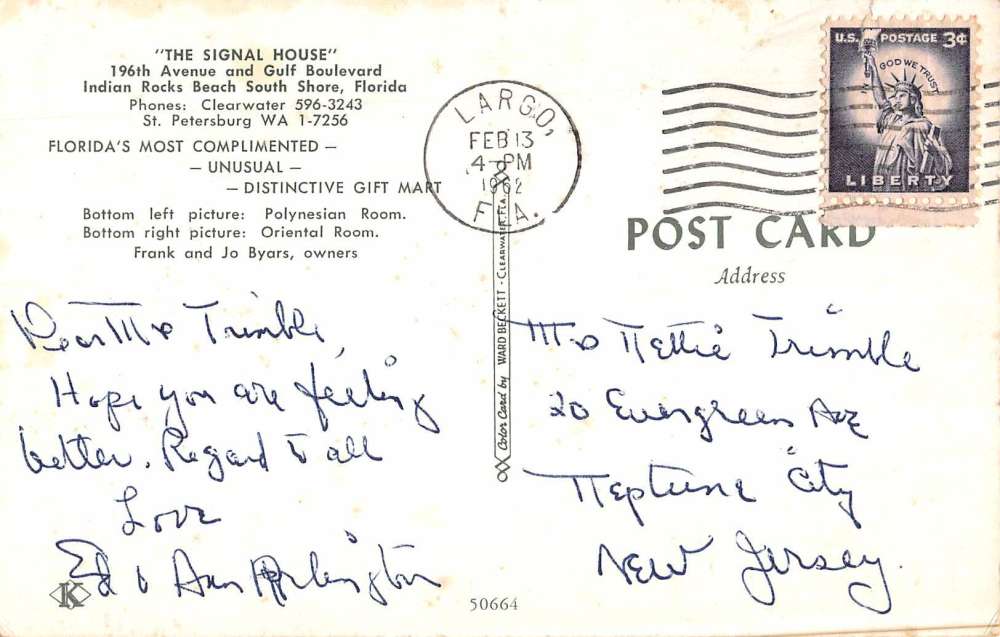 "THE SIGNAL HOUSE"
196th Avenue and Gulf Boulevard
Indian Rocks Beach South Shore, Florida
Phones: Clearwater 596-3243
St. Petersburg WA 1-7256
FLORIDA'S MOST COMPLIMENTED —
— UNUSUAL —
— DISTINCTIVE GIFT MART
Bottom left picture: Polynesian Room.
Bottom right picture: Oriental Room.
Frank and Jo Byars, owners
Dear Mrs Trimble,
Hope you are feeling
better. Regard to all
Love
Ed & Ann
K
Color Card by WARD BECKETT - CLEARWATER, FLA.
LARGO,
FEB 13
4-PM
1962
FLA.
U.S. POSTAGE 3¢
IN GOD WE TRUST
LIBERTY
POST CARD
Address
Mrs Nettie Trimble
20 Evergreen Ave
Neptune City
New Jersey.
50664